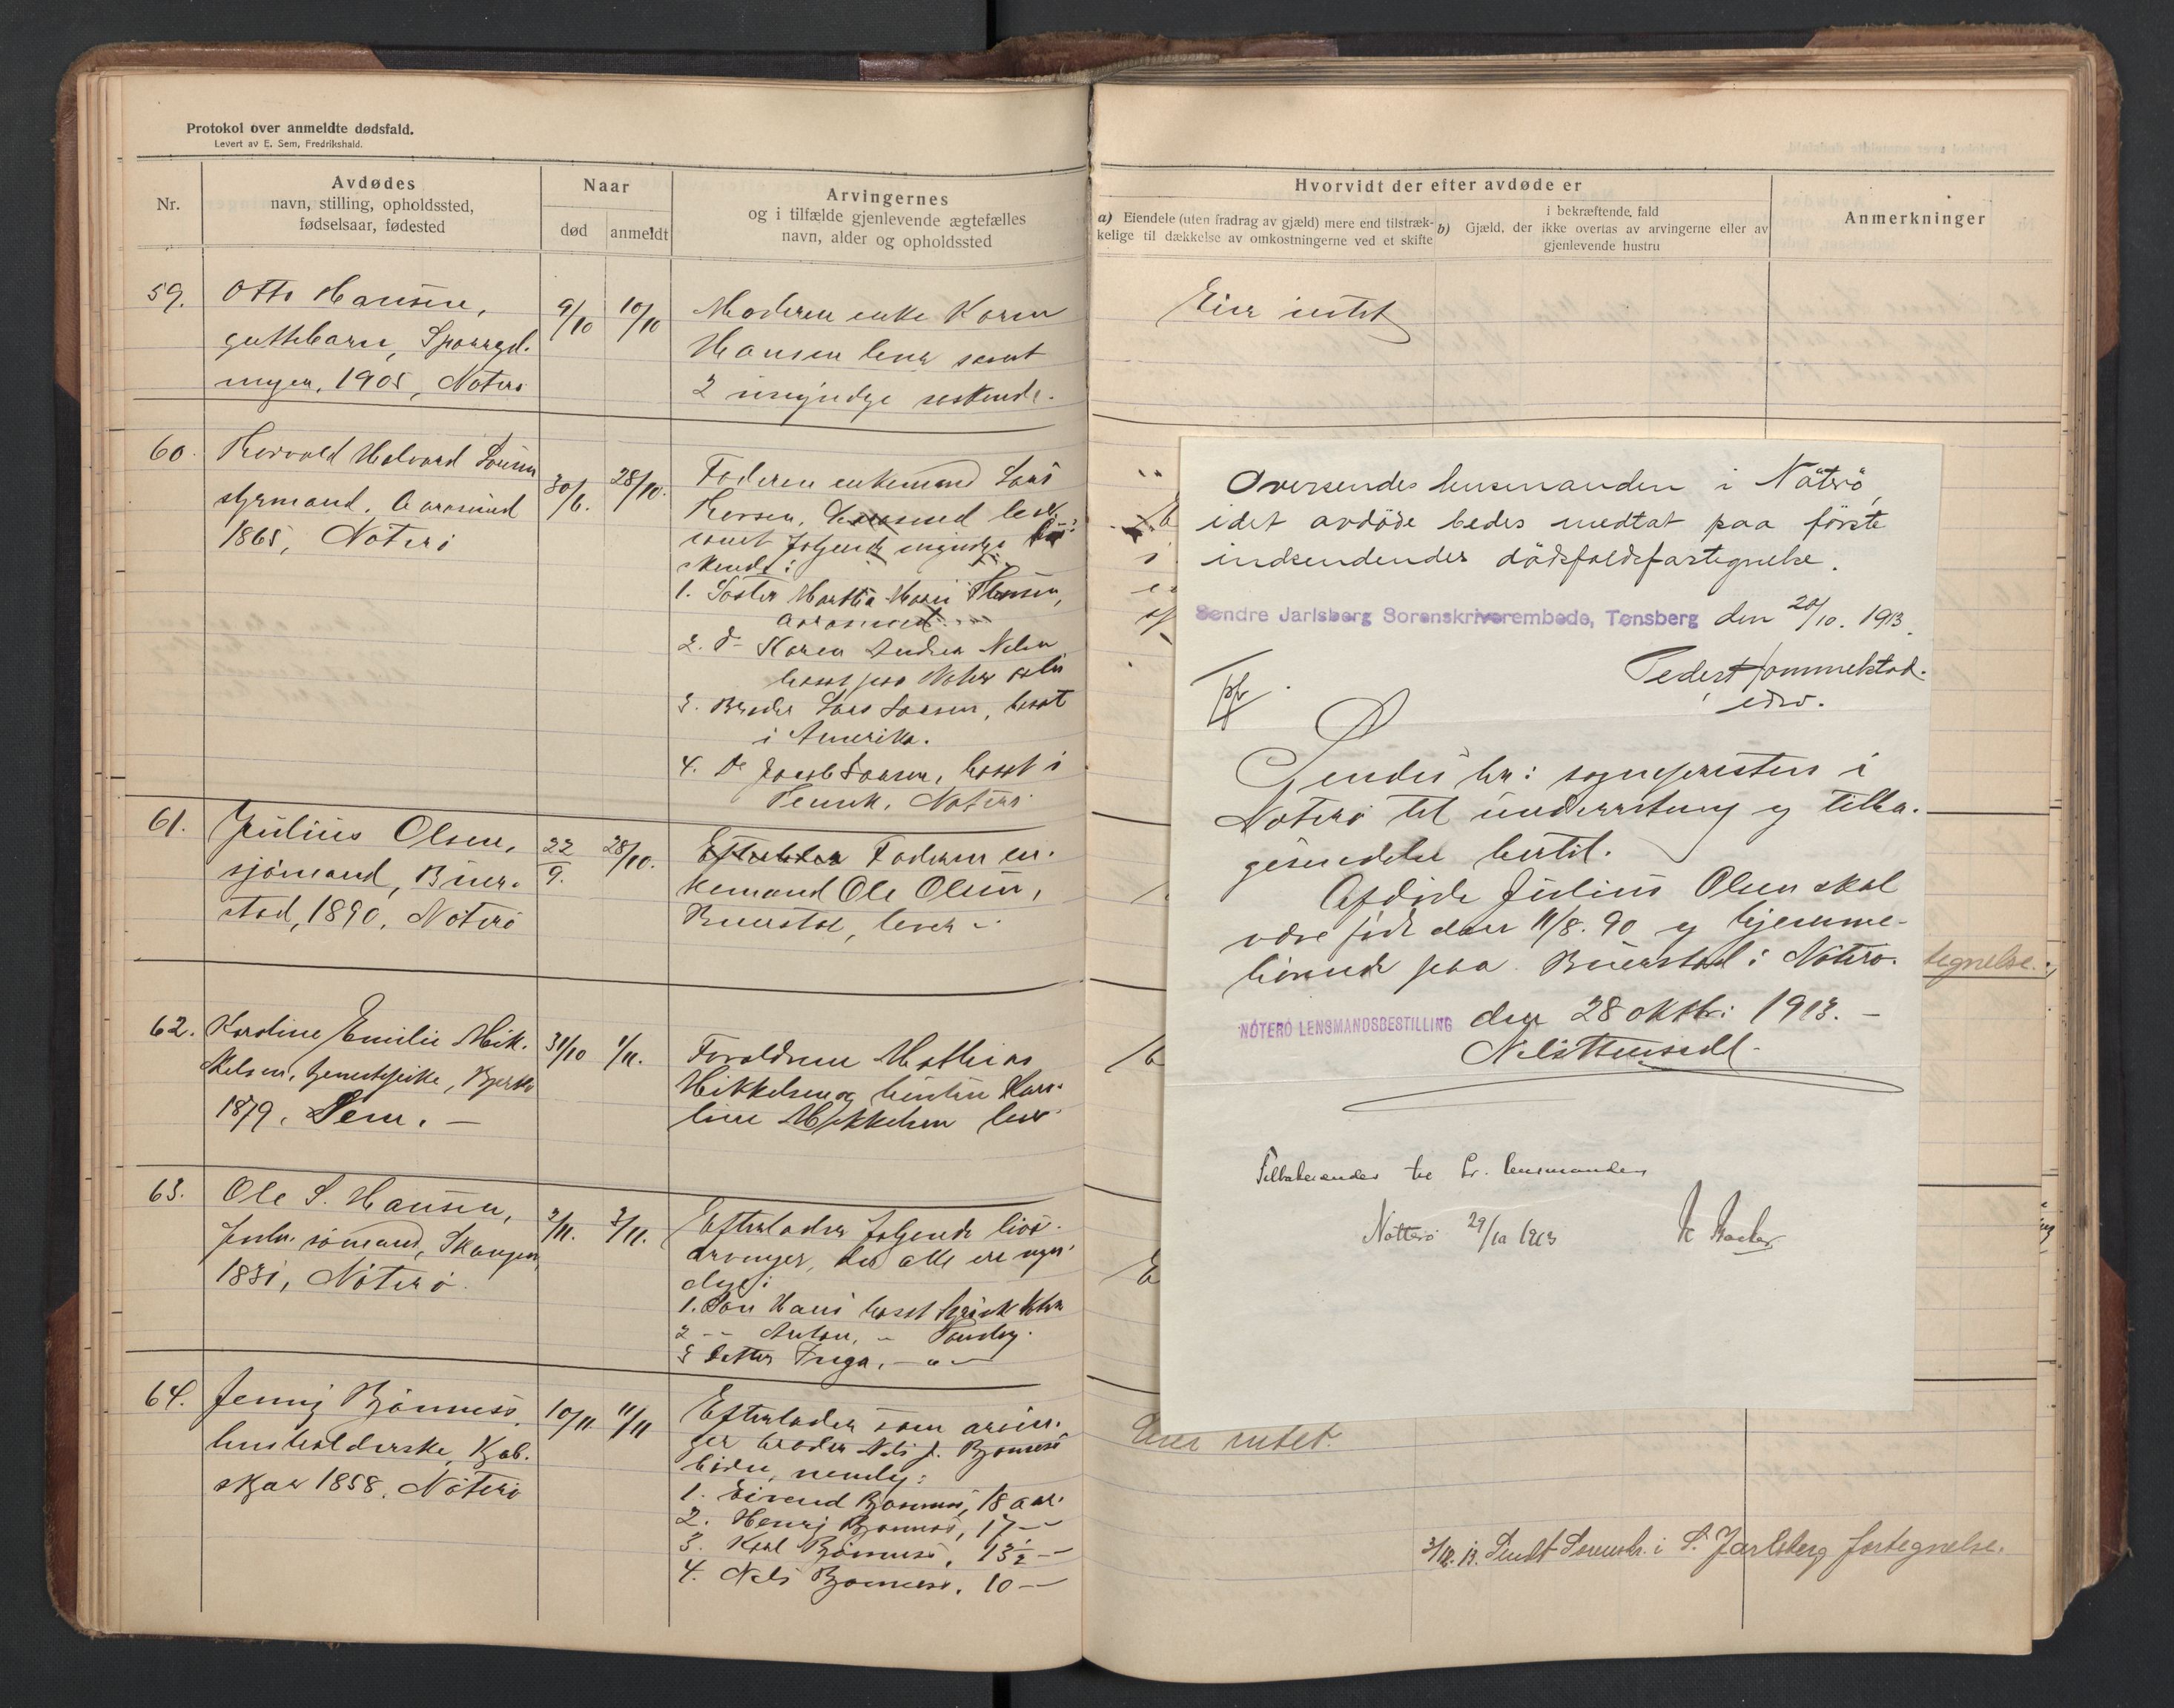 Protokol over anmeldte dødsfald.
Levert av E. Sem, Fredrikshald.
Nr.
Avdødes
navn, stilling, opholdssted,
fødselsaar, fødested
Naar
død
anmeldt
Arvingernes
og i tilfælde gjenlevende ægtefælles
navn, alder og opholdssted
59.
Otto Hansen,
guttebarn,
1905, Nøterø
9/10
10/10
Moderen enke Karen
Hansen lever samt
2 umyndige søskende.
60.
Halvard Larsen
styrmand,
1865, Nøterø
30/6.
28/10.
Faderen enkemand Lars
samt følgende myndige
skende:
1. Søster Martha Marie
2. d- Karen Andrea Nilsen
bosat paa Nøterø
3. Broder Lars Larsen, bosat
i Amerika.
4. Do Jacob Larsen, bosat i
Nøterø
61.
Julius Olsen,
sjømand, Buer-
stad, 1890, Nøterø
22/9.
28/10.
Efterlader Faderen en-
kemand Ole Olsen,
Buerstad, lever
62.
Karoline Emilie Mik-
kelsen, tjenestepike,
1879, Sem. —
31/10
1/11.
Forældrene Mathias
Mikkelsen og hustru Karo-
line Mikkelsen lever
63.
Ole S. Hansen,
sømand,
1831, Nøterø.
2/11.
3/11.
Efterlader følgende livs-
arvinger, der alle ere myn-
dige:
1. Søn Hans bosat
2 -- Anton, "
3 Datter
64.
Jenny Bjønness
husholderske, Kjøb-
skjær 1858. Nøterø
10/11
11/11
Efterlader som arvin-
ger broder Nils J. Bjønness
børn, nemlig:
1. Eivend Bjønness, 18 aar.
2. Henry Bjønness, 17 --
3. Karl Bjønness, 13½ --
4. Nils Bjønness, 10 --
Hvorvidt der efter avdøde er
a) Eiendele (uten fradrag av gjæld) mere end tilstræk-
kelige til dækkelse av omkostningerne ved et skifte
i bekræftende fald
b) Gjæld, der ikke overtas av arvingerne eller av
gjenlevende hustru
Anmerkninger
Eier intet
Oversendes lensmanden i Nøterø,
idet avdøde bedes medtat paa første
indsendendes dødsfaldsfortegnelse.
Søndre Jarlsberg Sorenskriverembede, Tønsberg den 20/10. 1913.
Peder Hommelstad.
edsv.
Sendes hr: sognepresten i
Nøterø til underretning og tilba-
gesendelse hertil.
Afdøde Julius Olsen skal
være født den 11/8. 90 og hjemme-
hørende paa Buerstad i Nøterø.
NØTERØ LENSMANDSBESTILLING den 28 oktbr: 1913. —
Tilbakesendes til hr. lensmanden
Nøtterø 29/10 1913
tegnelse.
Eier intet.
3/12. 13. Sendt Sorenskr. i S. Jarlsberg fortegnelse.